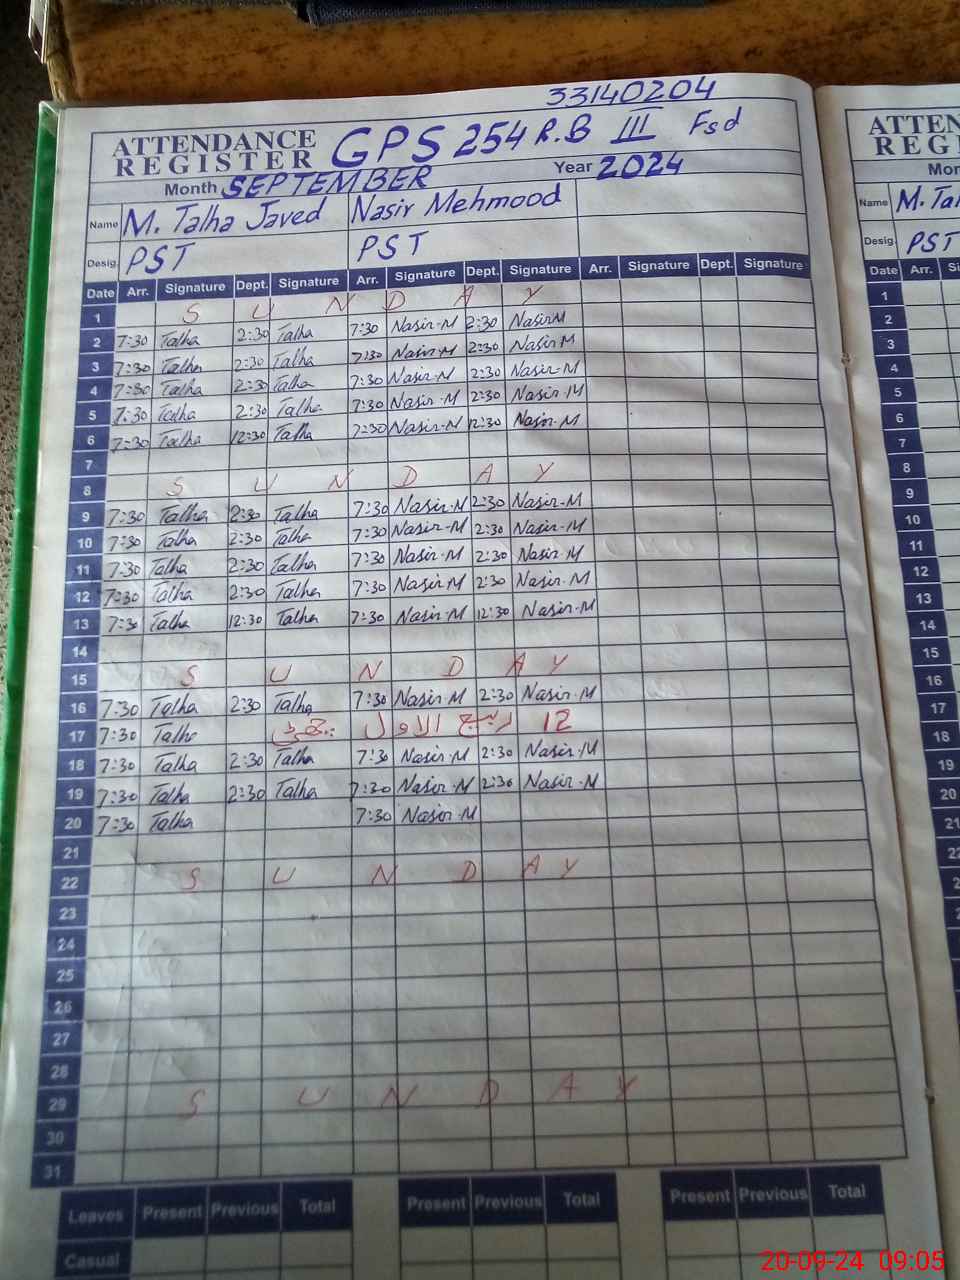 33140204
ATTENDANCE REGISTER GPS 254 R.B III Fsd
Month SEPTEMBER Year 2024
Name M. Talha Javed Nasir Mehmood
Desig. PST PST
Date Arr. Signature Dept. Signature Arr. Signature Dept. Signature Arr. Signature Dept. Signature
1 S U N D A Y
2 7:30 Talha 2:30 Talha 7:30 Nasir-M 2:30 Nasir M
3 7:30 Talha 2:30 Talha 7:30 Nasir-M 2:30 Nasir M
4 7:30 Talha 2:30 Talha 7:30 Nasir-M 2:30 Nasir-M
5 7:30 Talha 2:30 Talha 7:30 Nasir-M 2:30 Nasir-M
6 7:30 Talha 12:30 Talha 7:30 Nasir-M 12:30 Nasir-M
7
8 S U N D A Y
9 7:30 Talha 2:30 Talha 7:30 Nasir-M 2:30 Nasir-M
10 7:30 Talha 2:30 Talha 7:30 Nasir-M 2:30 Nasir-M
11 7:30 Talha 2:30 Talha 7:30 Nasir-M 2:30 Nasir-M
12 7:30 Talha 2:30 Talha 7:30 Nasir-M 2:30 Nasir-M
13 7:30 Talha 12:30 Talha 7:30 Nasir-M 12:30 Nasir-M
14
15 S U N D A Y
16 7:30 Talha 2:30 Talha 7:30 Nasir-M 2:30 Nasir-M
17 7:30 Talha 12 ربیع الاول چھٹی
18 7:30 Talha 2:30 Talha 7:30 Nasir-M 2:30 Nasir-M
19 7:30 Talha 2:30 Talha 7:30 Nasir-M 2:30 Nasir-M
20 7:30 Talha 7:30 Nasir-M
21
22 S U N D A Y
23
24
25
26
27
28
29 S U N D A Y
30
31
Leaves Present Previous Total Present Previous Total Present Previous Total
Casual
ATTEN
REG
Mon
Name M. Tal
Desig. PST
Date Arr. Si
1
2
3
4
5
6
7
8
9
10
11
12
13
14
15
16
17
18
19
20
21
20-09-24 09:05